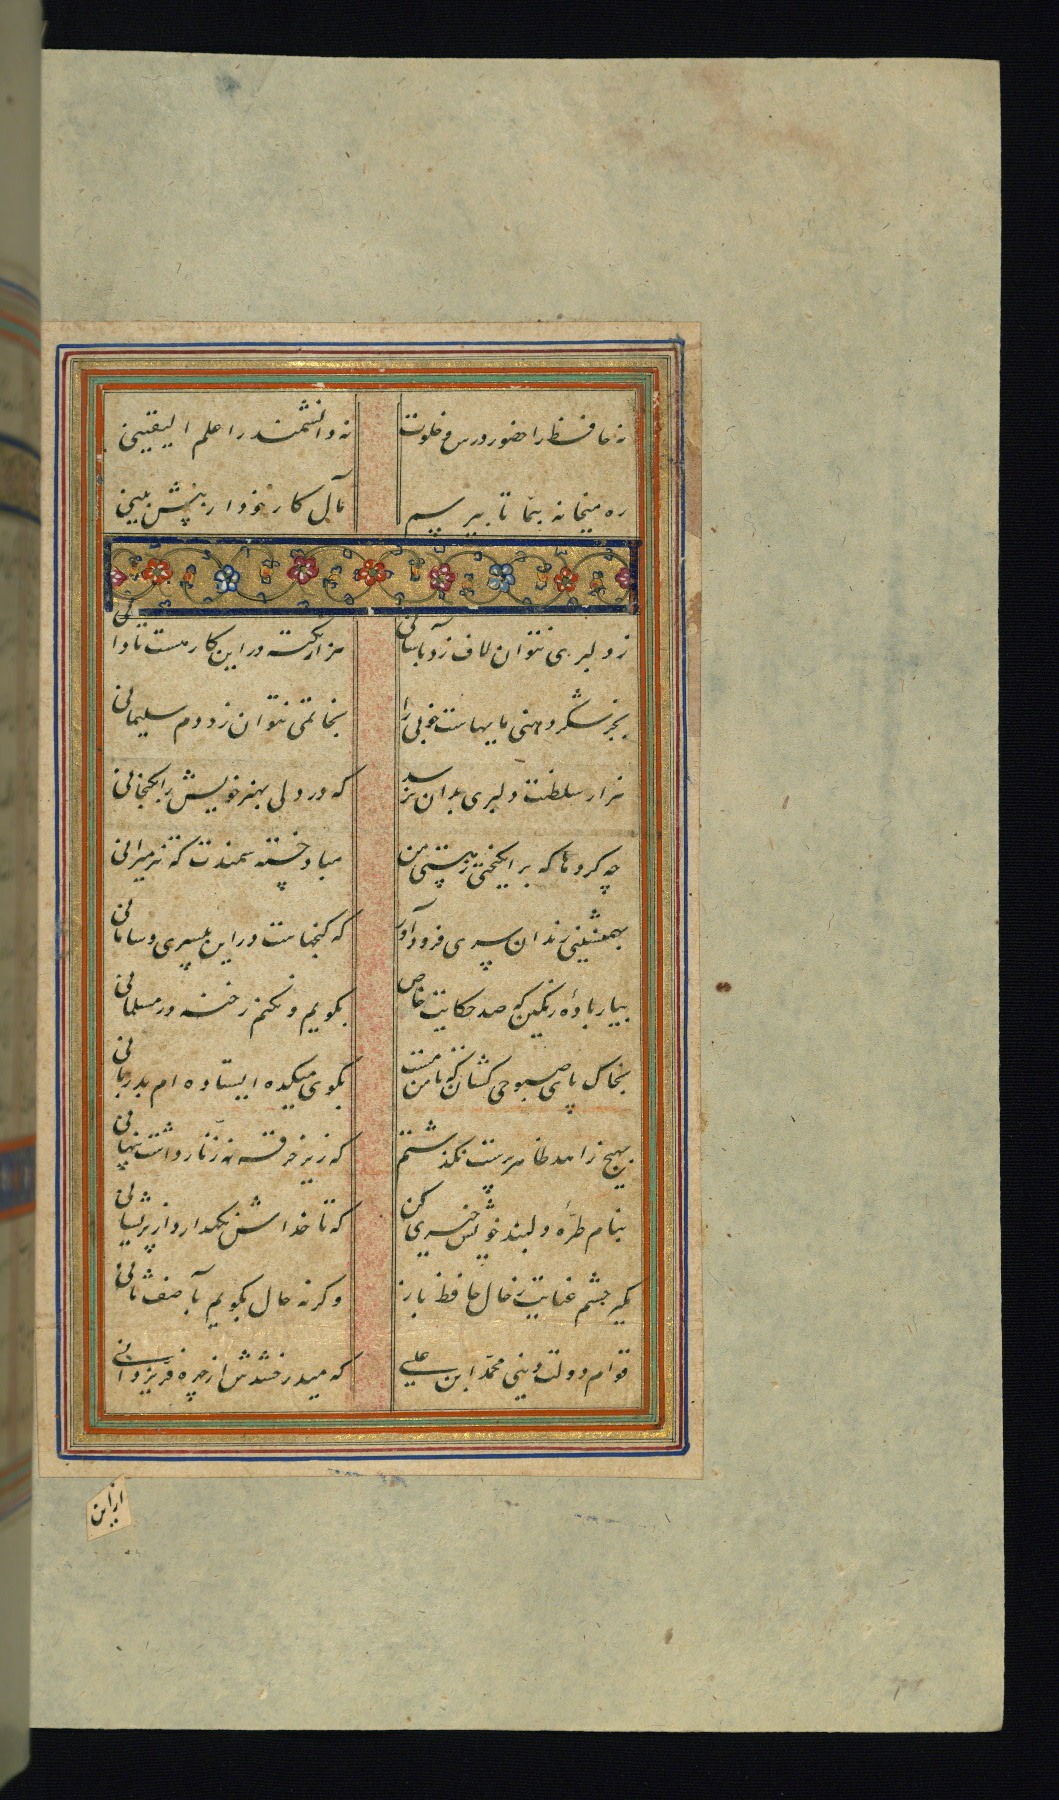 نه حافظ را حضور درس و خلوت نه دانشمند را علم الیقینی
ره میخانه بنما تا بپرسیم مآل کار خود از پیش بینی
ز دلبری نتوان لاف زد بآسانی هزار نکته در این کار هست تا دانی
بجز شکر دهنی مایهاست خوبی را بخاتمی نتوان زد دم سلیمانی
هزار سلطنت دلبری بدان نرسد که در دلی بهنر خویش را بگنجانی
چه کردها که برانگیختی ز هستی من مباد خسته سمندت که تیز میرانی
بهمنشینی رندان سری فرود آور که گنجهاست در این بیسری و سامانی
بیار باده رنگین که صد حکایت خاص بگویم و نکنم رخنه در مسلمانی
بخاک پای صبوحی کشان که تا من مست بکوی میکده ایستاده ام بدربانی
بهیچ زاهد ظاهر پرست نگذشتم که زیر خرقه نه زنار داشت پنهانی
بنام طره دلبند خویش خیری کن که تا خداش نگهدارد از پریشانی
مگیر چشم عنایت ز حال حافظ باز وگرنه حال بگویم بآصف ثانی
قوام دولت دینی محمد ابن علی که میدرخشدش از چهره فر یزدانی
از این